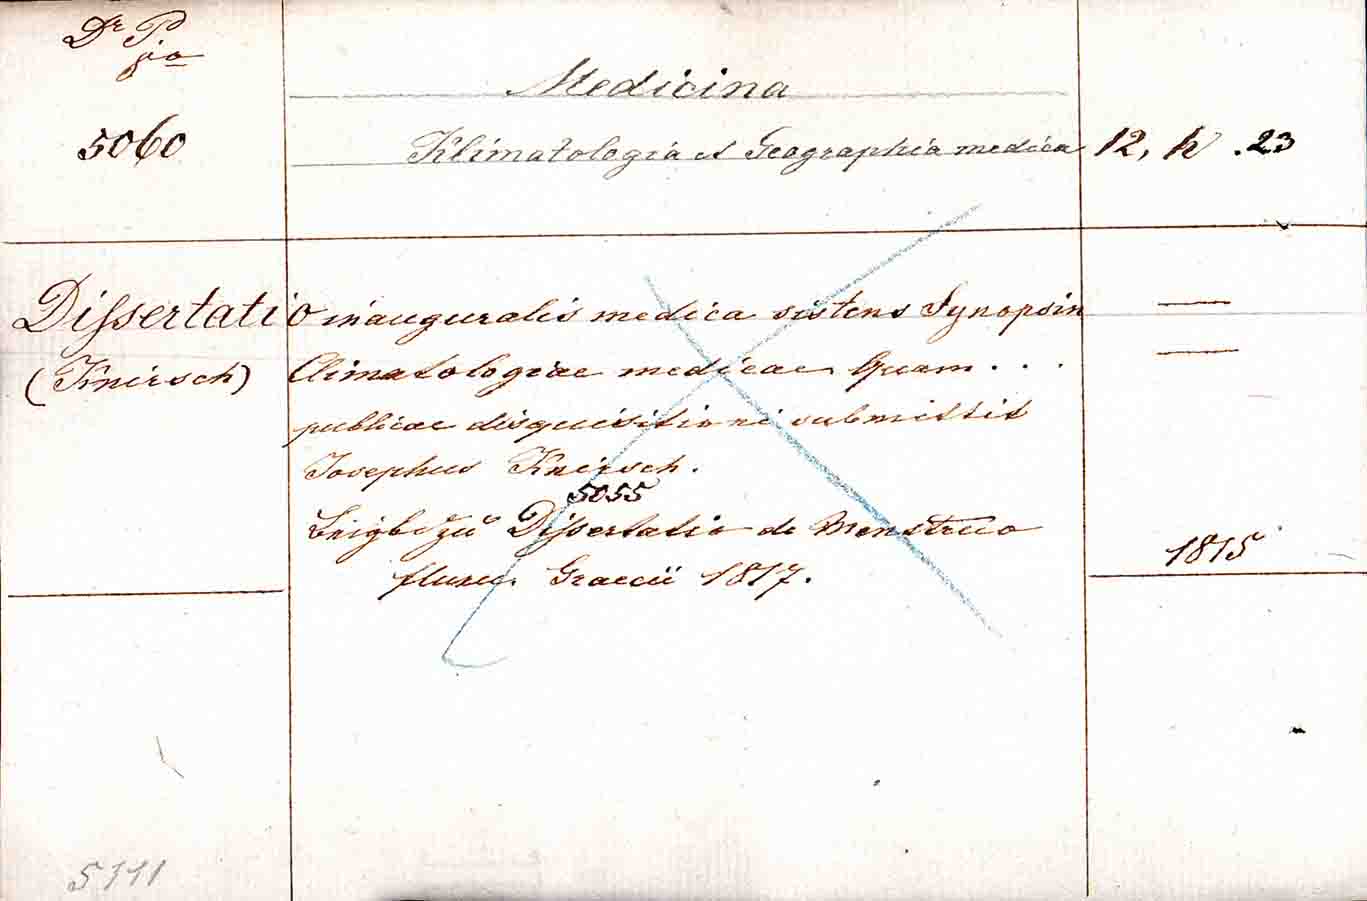 Dr P
ja
Medicina
5060
Klimatologia et Geographia medica 12, h. 23
Dissertatio inauguralis medica sistens Synopsin —
(Knirsch) Climatologiae medicae quam . . . —
publicae disquisitioni submittit
Josephus Knirsch.
5055
Dissertatio de Menstruo
1815
fluxu. Graecii 1817.
5111